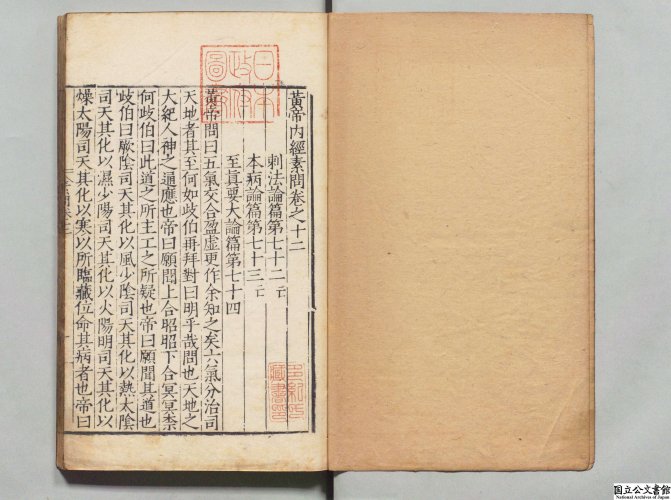 黃帝內經素問卷之十二
刺法論篇第七十二亡
本病論篇第七十三亡
至眞要大論篇第七十四
黃帝問曰五氣交合盈虛更作余知之矣六氣分治司
天地者其至何如歧伯再拜對曰明乎哉問也天地之
大紀人神之通應也帝曰願聞上合昭昭下合冥冥柰
何歧伯曰此道之所主工之所疑也帝曰願聞其道也
歧伯曰厥陰司天其化以風少陰司天其化以熱太陰
司天其化以濕少陽司天其化以火陽明司天其化以
燥太陽司天其化以寒以所臨藏位命其病者也帝曰
日本
政府
圖書
藏書
国立公文書館
National Archives of Japan